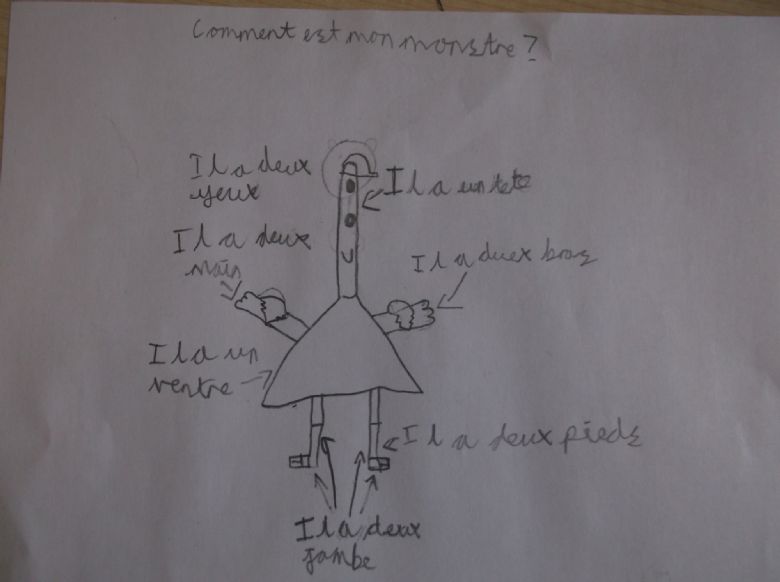 Comment est mon monstre ?
Il a deux
yeux
Il a un tete
Il a deux
main
Il a duex bras
Il a un
ventre
Il a deux pieds
Il a deux
jambe